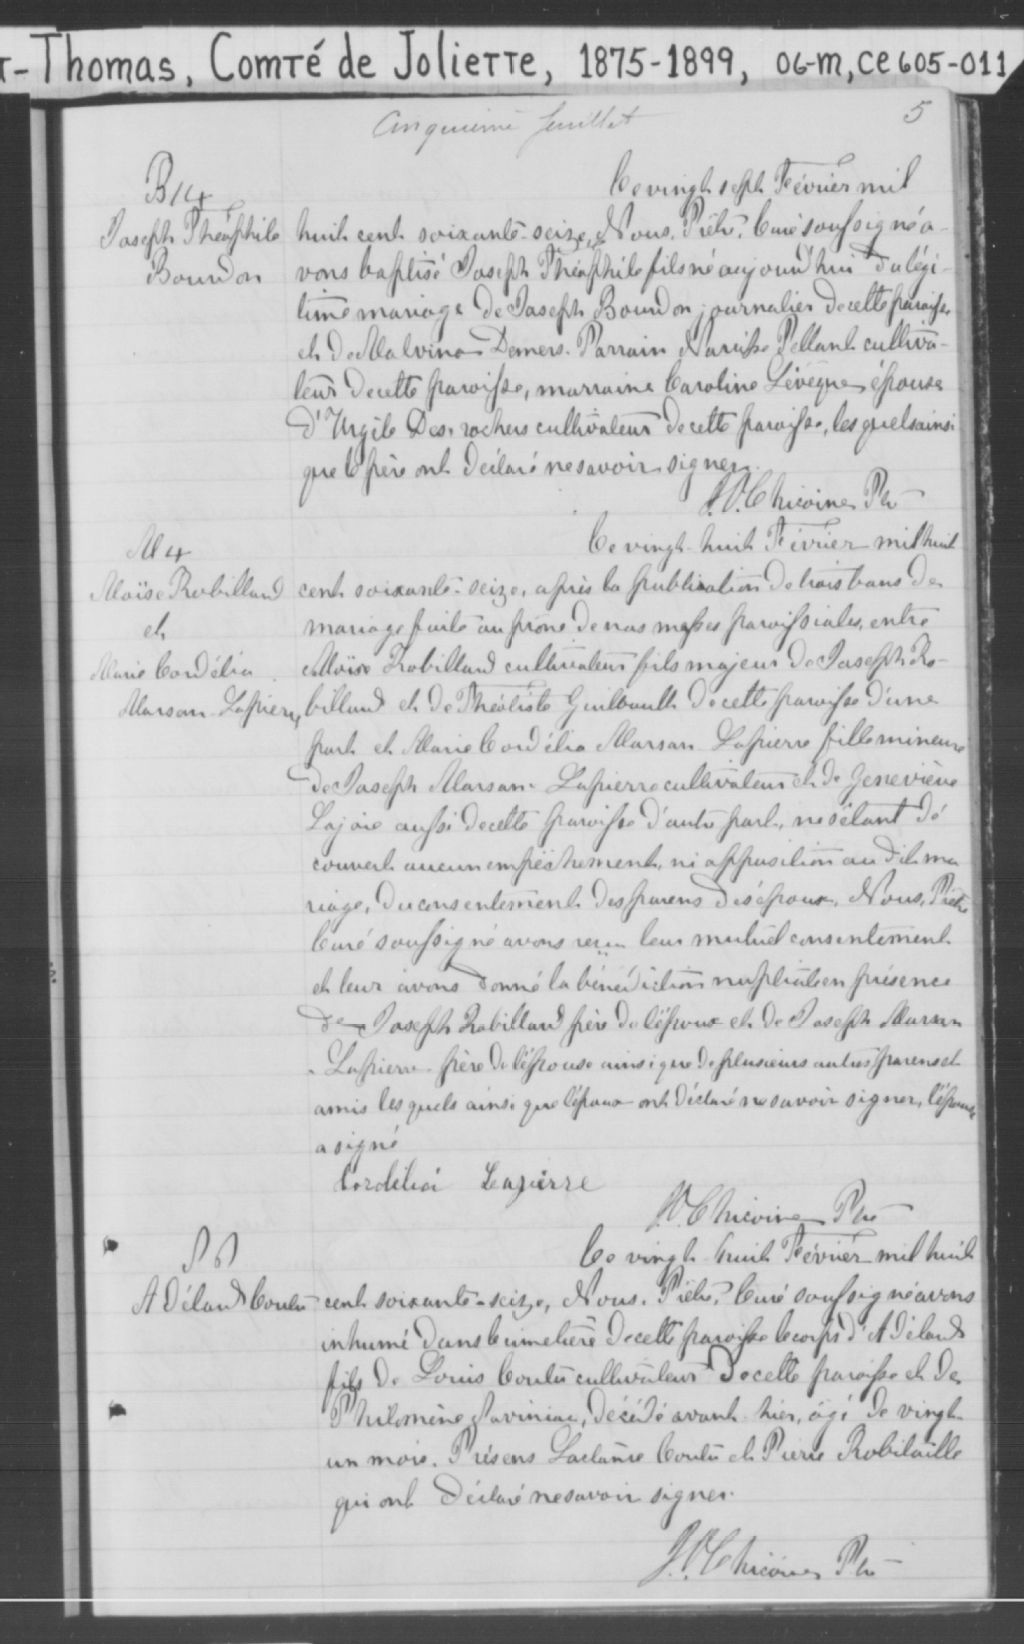 T-Thomas, Comté de Joliette, 1875-1899, 06-M, CE605-011
Cinquième feuillet
5
B14
Joseph Théophile
Bourdon
Ce vingt sept Février mil
huit cent soixante-seize, Nous, Prêtre, Curé soussigné a-
vons baptisé Joseph Théophile fils né aujourd'hui du légi-
time mariage de Joseph Bourdon journalier de cette paroisse
et de Malvina Demers. Parrain Narcisse Pellant cultiva-
teur de cette paroisse, marraine Caroline Lévêque épouse
d'Urgile Desrochers cultivateur de cette paroisse, lesquels ainsi
que le père ont déclaré ne savoir signer.
J.O. Chicoine Ptr
M4
Moïse Robillard
et
Marie Cordélia
Marsan-Lapierre
Ce vingt-huit Février mil huit
cent soixante-seize, après la publication de trois bans de
mariage faite au prône de nos messes paroissiales, entre
Moïse Robillard cultivateur fils majeur de Joseph Ro-
billard et de Théotiste Guilbault de cette paroisse d'une
part et Marie Cordélia Marsan-Lapierre fille mineure
de Joseph Marsan-Lapierre cultivateur et de Geneviève
Lajoie aussi de cette paroisse d'autre part, ne s'étant dé
couvert aucun empêchement, ni opposition au dit ma
riage, du consentement des parens des époux, Nous, Prêtre
Curé soussigné avons reçu leur mutuel consentement
et leur avons donné la bénédiction nuptiale en présence
de Joseph Robillard père de l'époux et de Joseph Marsan
-Lapierre père de l'épouse ainsi que de plusieurs autres parens et
amis lesquels ainsi que l'époux ont déclaré ne savoir signer, l'épouse
a signé
Cordéliá Lapierre
J.O. Chicoine Ptr
Adélard Coutu
Ce vingt-huit Février mil huit
cent soixante-seize, Nous, Prêtre, Curé soussigné avons
inhumé dans le cimetière de cette paroisse le corps d'Adélard
fils de Louis Coutu cultivateur de cette paroisse et de
Philomène décédé avant-hier, âgé de vingt
un mois. Présens Coutu et Pierre Robitaille
qui ont déclaré ne savoir signer.
J.O. Chicoine Ptr